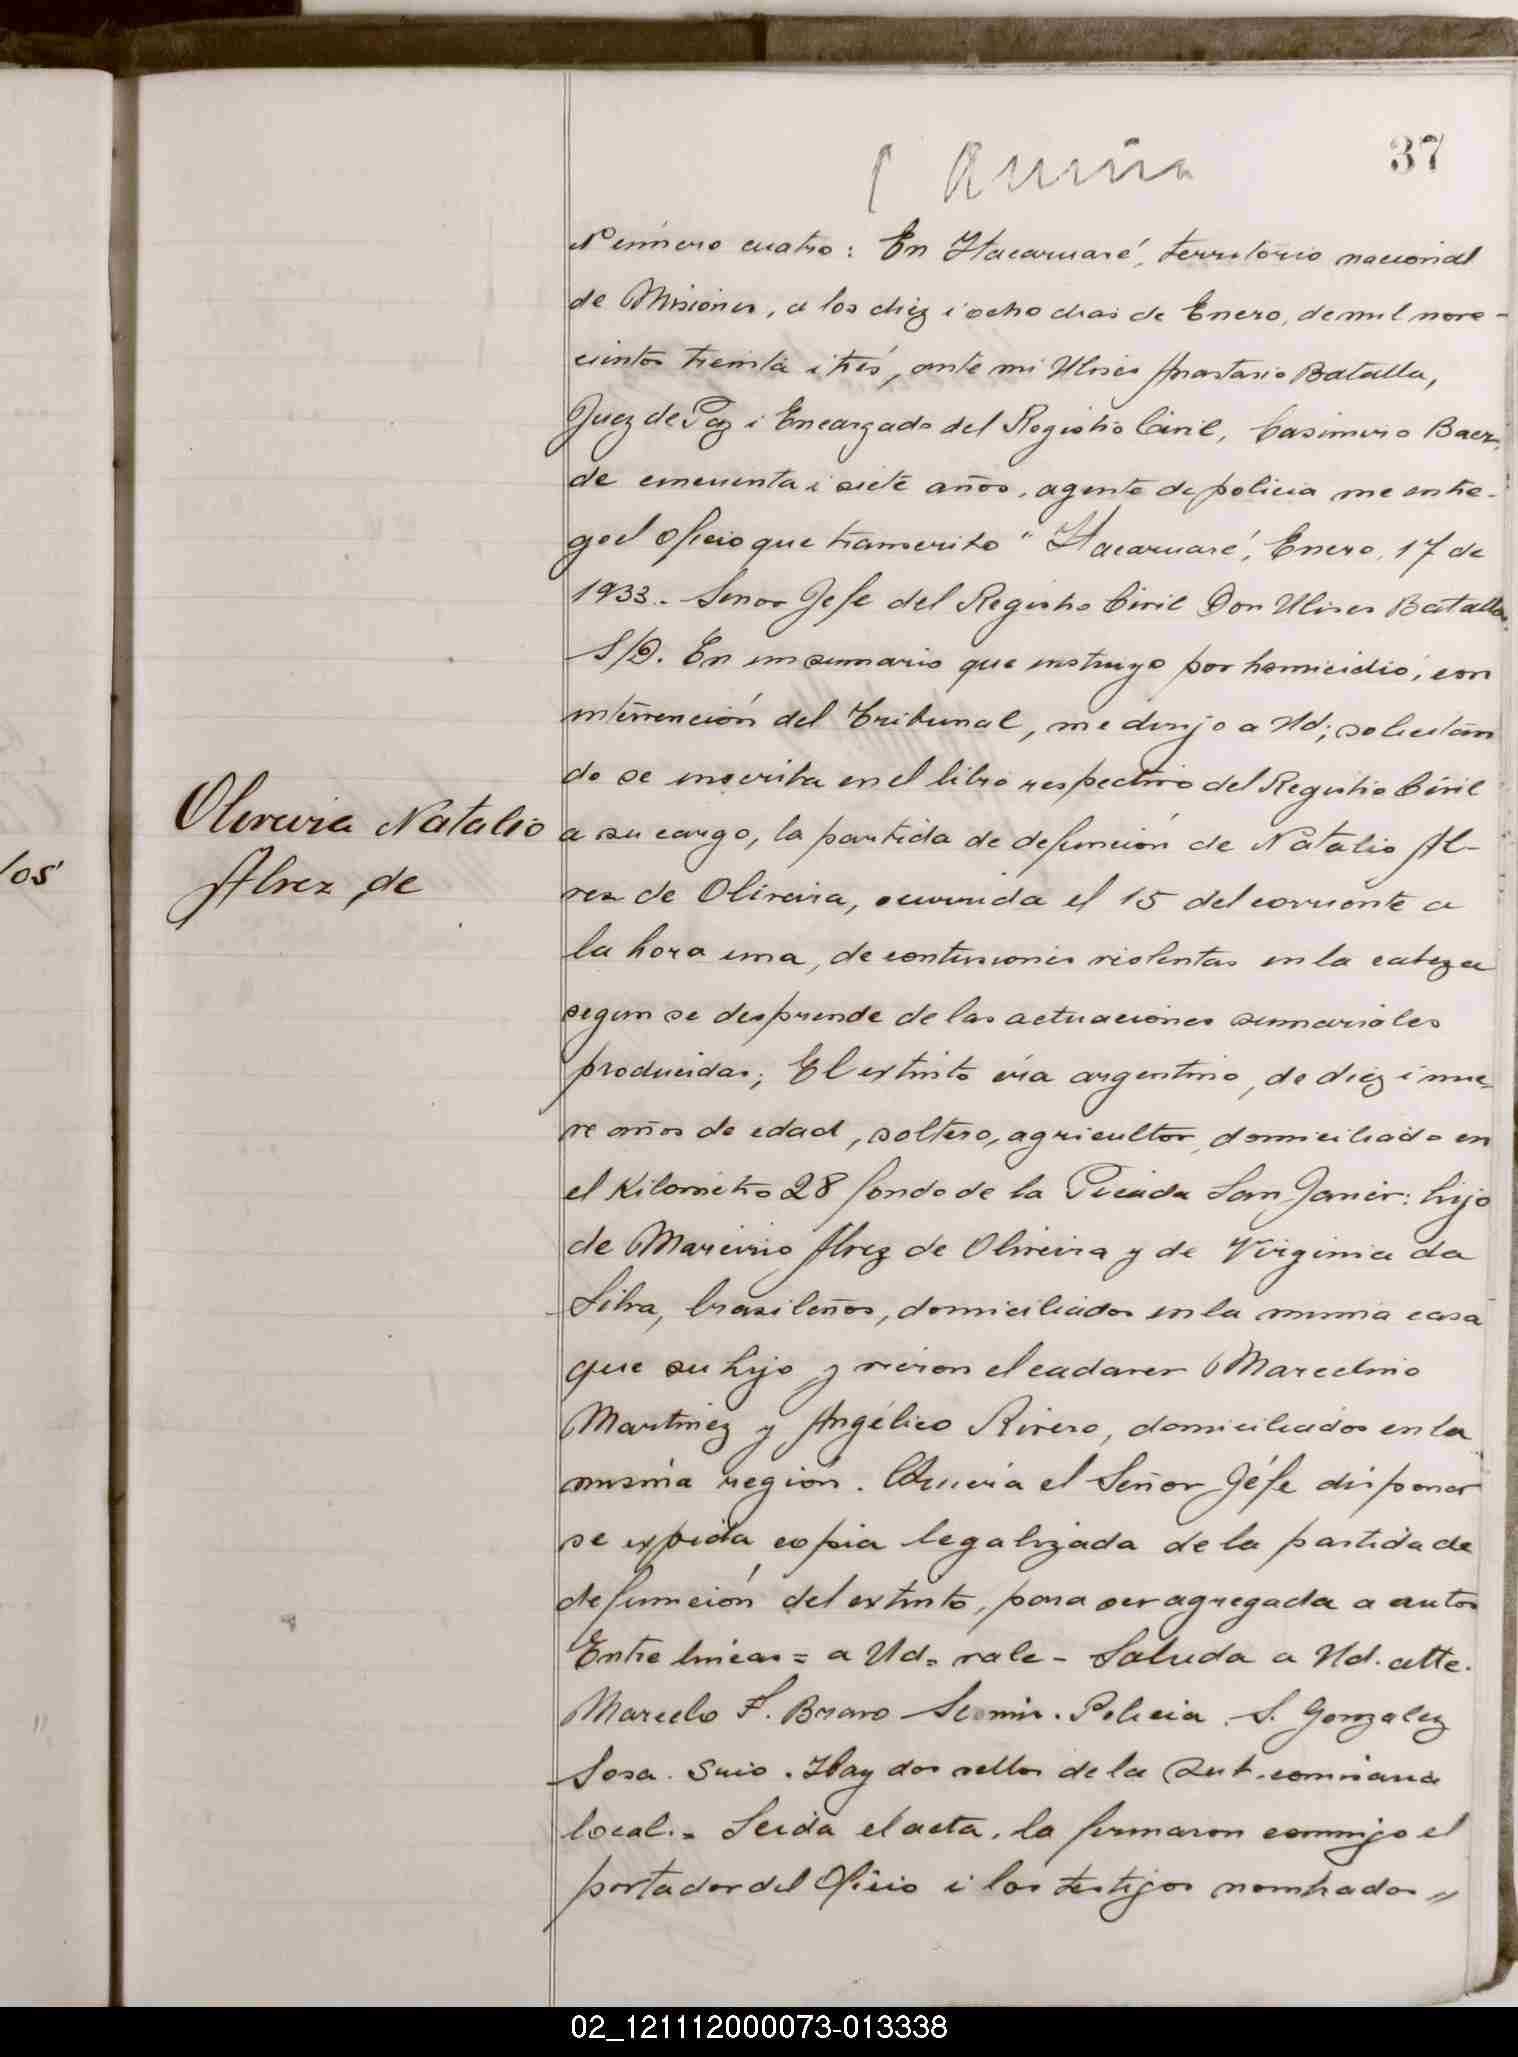 37
Número cuatro: En Itacaruaré, territorio nacional
de Misiones, a los diez i ocho dias de Enero, de mil nove-
cientos treinta i trés, ante mi Ulises Anastasio Batalla,
Juez de Paz i Encargado del Registro Civil, Casimiro Baez,
de cincuenta i siete años, agente de policia me entre-
go el oficio que transcribo " Itacaruaré, Enero, 17 de
1933.- Senor Jefe del Registro Civil Don Ulises Batalla.
S/D. En un sumario que instruyo por homicidio, con
intervención del Tribunal, me dirijo a Ud; solicitán
do se inscriba en el libro respectivo del Registro Civil
Oliveira Natalio
Alvez, de
a su cargo, la partida de defunción de Natalio Al-
vez de Oliveira, ocurrida el 15 del corriente a
la hora una, de contusiones violentas en la cabeza
segun se desprende de las actuaciones sumariales
producidas; El extinto era argentino, de diez i nue-
ve años de edad, soltero, agricultor, domiciliado en
el Kilometro 28 fondo de la Picada San Javier: hijo
de Marcirio Alvez de Oliveira y de Virginia da
Silva, brasileños, domiciliados en la misma casa
que su hijo y vieron el cadaver Marcelino
Martinez y Angélico Rivero, domiciliados en la
misma región. Querria el Señor Jéfe disponer
se expida copia legalizada de la partida de
defunción del extinto, para ser agregada a autos
Entre lineas = a Ud = vale - Saluda a Ud. atte.
Marcelo F. Bravo Scomis. Policia. S. Gonzalez
Sosa. Srio. Hay dos sellos de la Sub-comisaria
local.= Leida el acta, la firmaron conmigo el
portador del Oficio i los testigos nombrados "
los
"
02_121112000073-013338